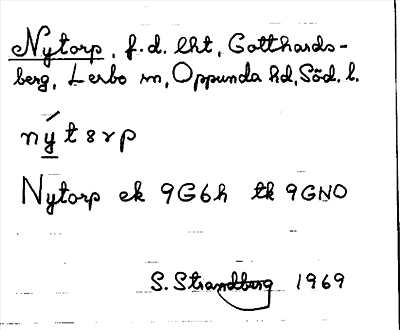 Nytorp, f.d. lht, Gotthards-
berg, Lerbo sn, Oppunda hd, Söd. l.
nýtȣrp
Nytorp ek 9G6h tk 9GNO
S. Strandberg 1969